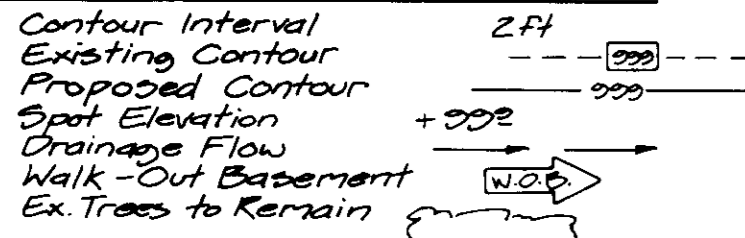 Contour Interval 2ft
Existing Contour 999
Proposed Contour 999
Spot Elevation +999
Drainage Flow
Walk-Out Basement W.O.B.
Ex. Trees to Remain